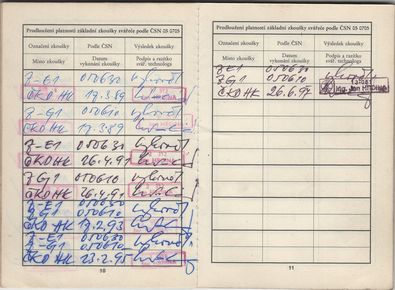 Prodloužení platnosti základní zkoušky svářeče podle ČSN 05 0705
Označení zkoušky Podle ČSN Výsledek zkoušky
Místo zkoušky Datum vykonání zkoušky Podpis a razítko svář. technologa
Z-E1 050630 vyhověl
ČKD HK 17.3.89
Z-G1 050610 vyhověl
ČKD HK 17.3.89
Z-E1 050630 vyhověl
ČKD HK 26.4.91
Z G1 050610 vyhověl
ČKD HK 26.4.91
Z-E1 050630 vyhověl
Z-G1 050610
ČKD HK 17.2.93
Z-E1 050630 vyhověl
Z-G1 050610
ČKD HK 23.2.95
10
Prodloužení platnosti základní zkoušky svářeče podle ČSN 05 0705
Označení zkoušky Podle ČSN Výsledek zkoušky
Místo zkoušky Datum vykonání zkoušky Podpis a razítko svář. technologa
Z-E1 050630 vyhověl
Z G1 050610
ČKD HK 26.6.97 Ing. Jan
11